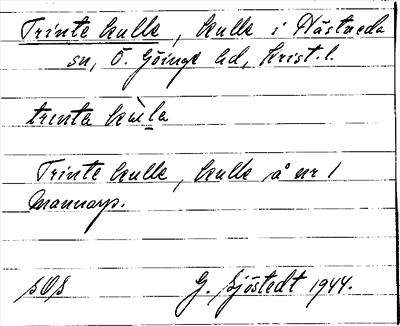 Trinte kulle, kulle i Hästveda
sn, Ö. Göinge hd, Krist. l.
trinta kùla
Trinte kulle, kulle å nr 1
Mannarp.
sOs G. Sjöstedt 1944.